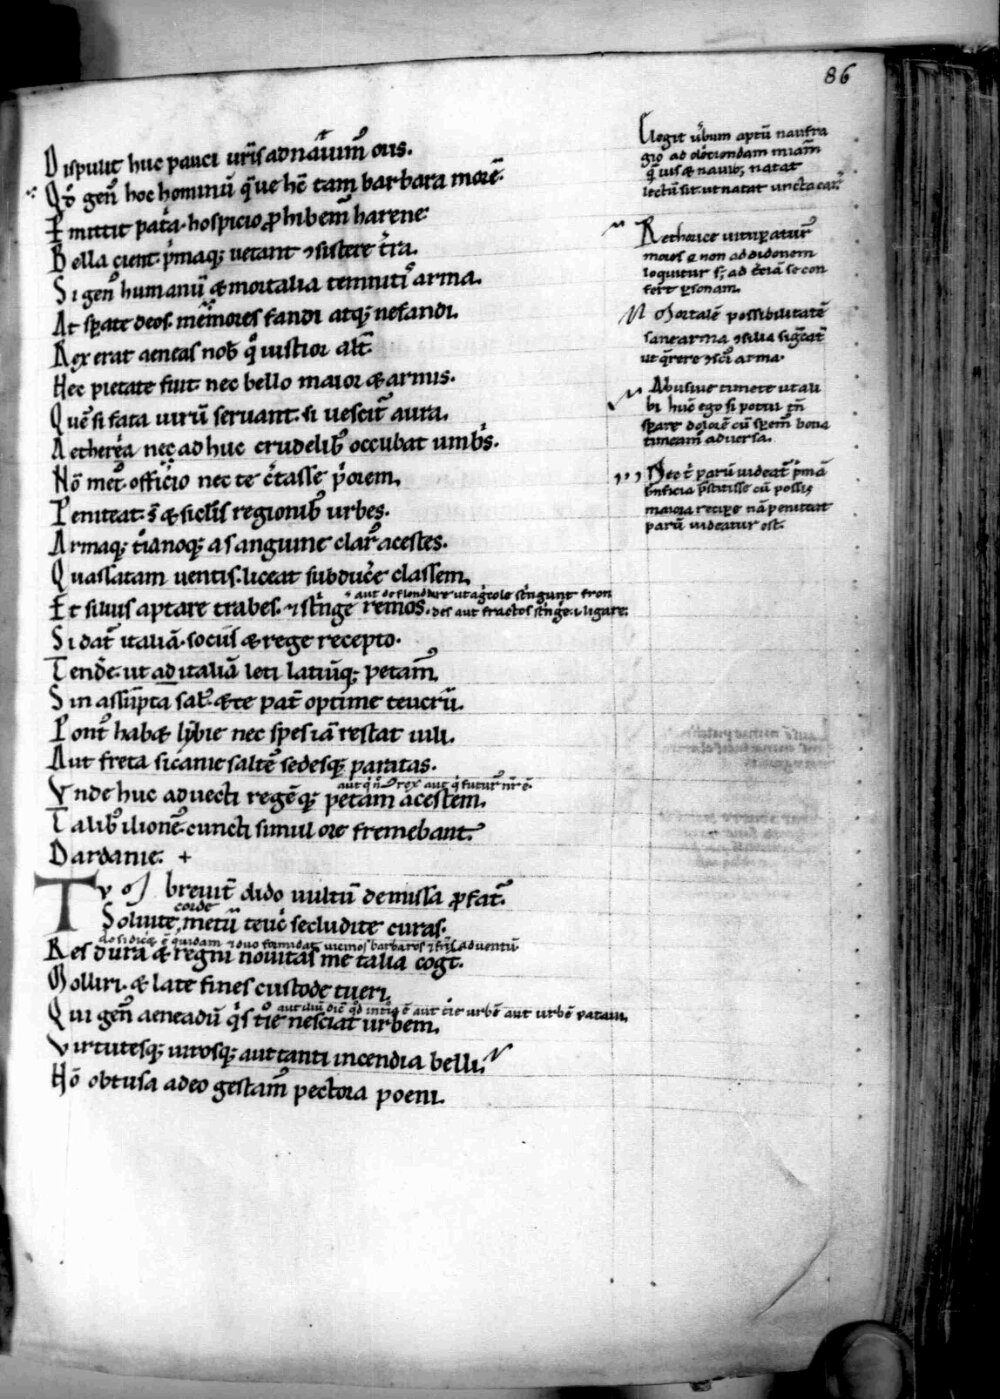 86
Dispulit huc pauci uris adnauim oris.
Qđ gen hoc hominū q̄ue hc̄ tam barbara more
Pmittit patͥa. hospicio ꝓhibem̄ harene
Bella cient. pͥmaq; uetant ⁊sistere tͥra.
Si gen humanū & mortalia temniti arma.
At sꝑate deos. memores fandi atq; nefandi.
Rex erat aeneas nob qͦ iustior alt̄
Nec pietate fuit nec bello maior & armis.
Quē si fata uirū seruant. si uescit̄ aura.
Aetherea neç adhuc crudelib occubat umbͥs.
Nō met officio nec te cͥtasse pͥorem,
Peniteat. s̄ & siclis regionib urbes.
Armaq; tͥanoq; a sanguine clar acestes.
Quassatam uentis. liceat subducͤe classem,
⁊ aut de flondare ut agͥcole stͥngunt fron
Et siluis aptare trabes. ⁊ stͥnge remos. des aut fractos stͥnge. i. ligare.
Si dat̄ italiā. sociis & rege recepto.
Tendͤe. ut ad italiā leti latiūq; petam̄,
Sin assūpta sal. & te pat̄ optime teucrū.
Pont hab& lybie nec spes iā restat iuli.
Aut freta sicanie saltē sedesq; paratas.
Vnde huc aduecti regēq; petam acestem,
Talib ilione. cuncti simul ore fremebant.
Dardanie. +
Tv breuit̄ dido uultū demissa ꝓfat̄
corde
Soluite metū teucͥ secludite curas.
Res dura & regni nouitas me talia cogt.
Moliri. & late fines custode tueri,
Qui gen aeneadū qͥs tͥie nesciat urbem,
Virtutesq; uirosq; aut tanti incendia belli.
Nō obtusa adeo gestam̄ pectora poeni.
Elegit ubum aptū naufra
gio ad
qͣuis & nauib; natat
lectū sit. ut natat uncta car
Rethorice uituꝑatur
mores & non ad didonem
loquitur s; ad tͥciā se con
fert ꝑsonam.
Mortalē possibilitatē
sane arma ⁊silia sigͥcat
ut qͣrere ⁊sci arma.
Abusiue timete ut ali
bi hūc ego si potui tn̄
sꝑare dolorē cū sꝑem bona
timeam aduersa.
Nec tͥ parū uideat̄ pͥma
bn̄ficia pͥstitisse cū possis
maiora reciꝑe nā penitet
parū uideatur est.